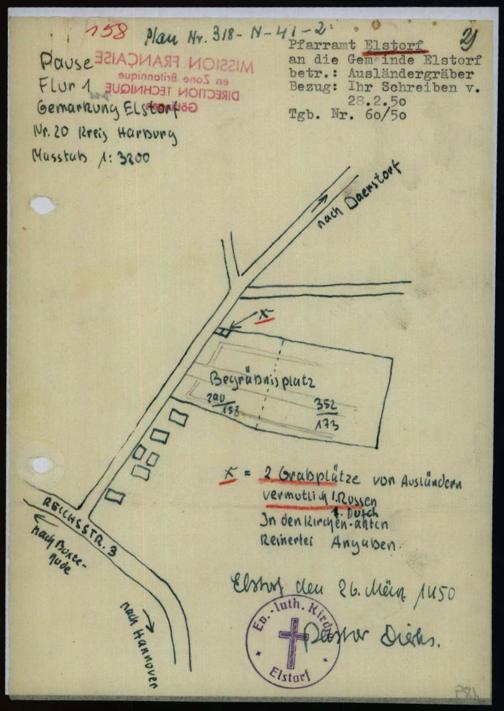 158 Plan Nr. 318-N-41-2
MISSION FRANÇAISE
en Zone Britannique
DIRECTION TECHNIQUE
Göttingen
Pause
Flur 1
Gemarkung Elstorf
Nr. 20 Kreis Harburg
Masstab 1:3200
Pfarramt Elstorf
an die Gemeinde Elstorf
betr.: Ausländergräber
Bezug: Ihr Schreiben v.
28.2.50
Tgb. Nr. 60/50
nach Daerstorf
x
Begräbnisplatz
200/156
352/173
x = 2 Grabplätze von Ausländern
vermutlich 1. Russen
1. Dtsch
In den Kirchen-akten
keinerlei Angaben.
REICHSSTR. 3
nach Buxte-
hude
nach Hannover
Elstorf den 26. März 1950
Pastor
Ev.-luth. Kirche
Elstorf